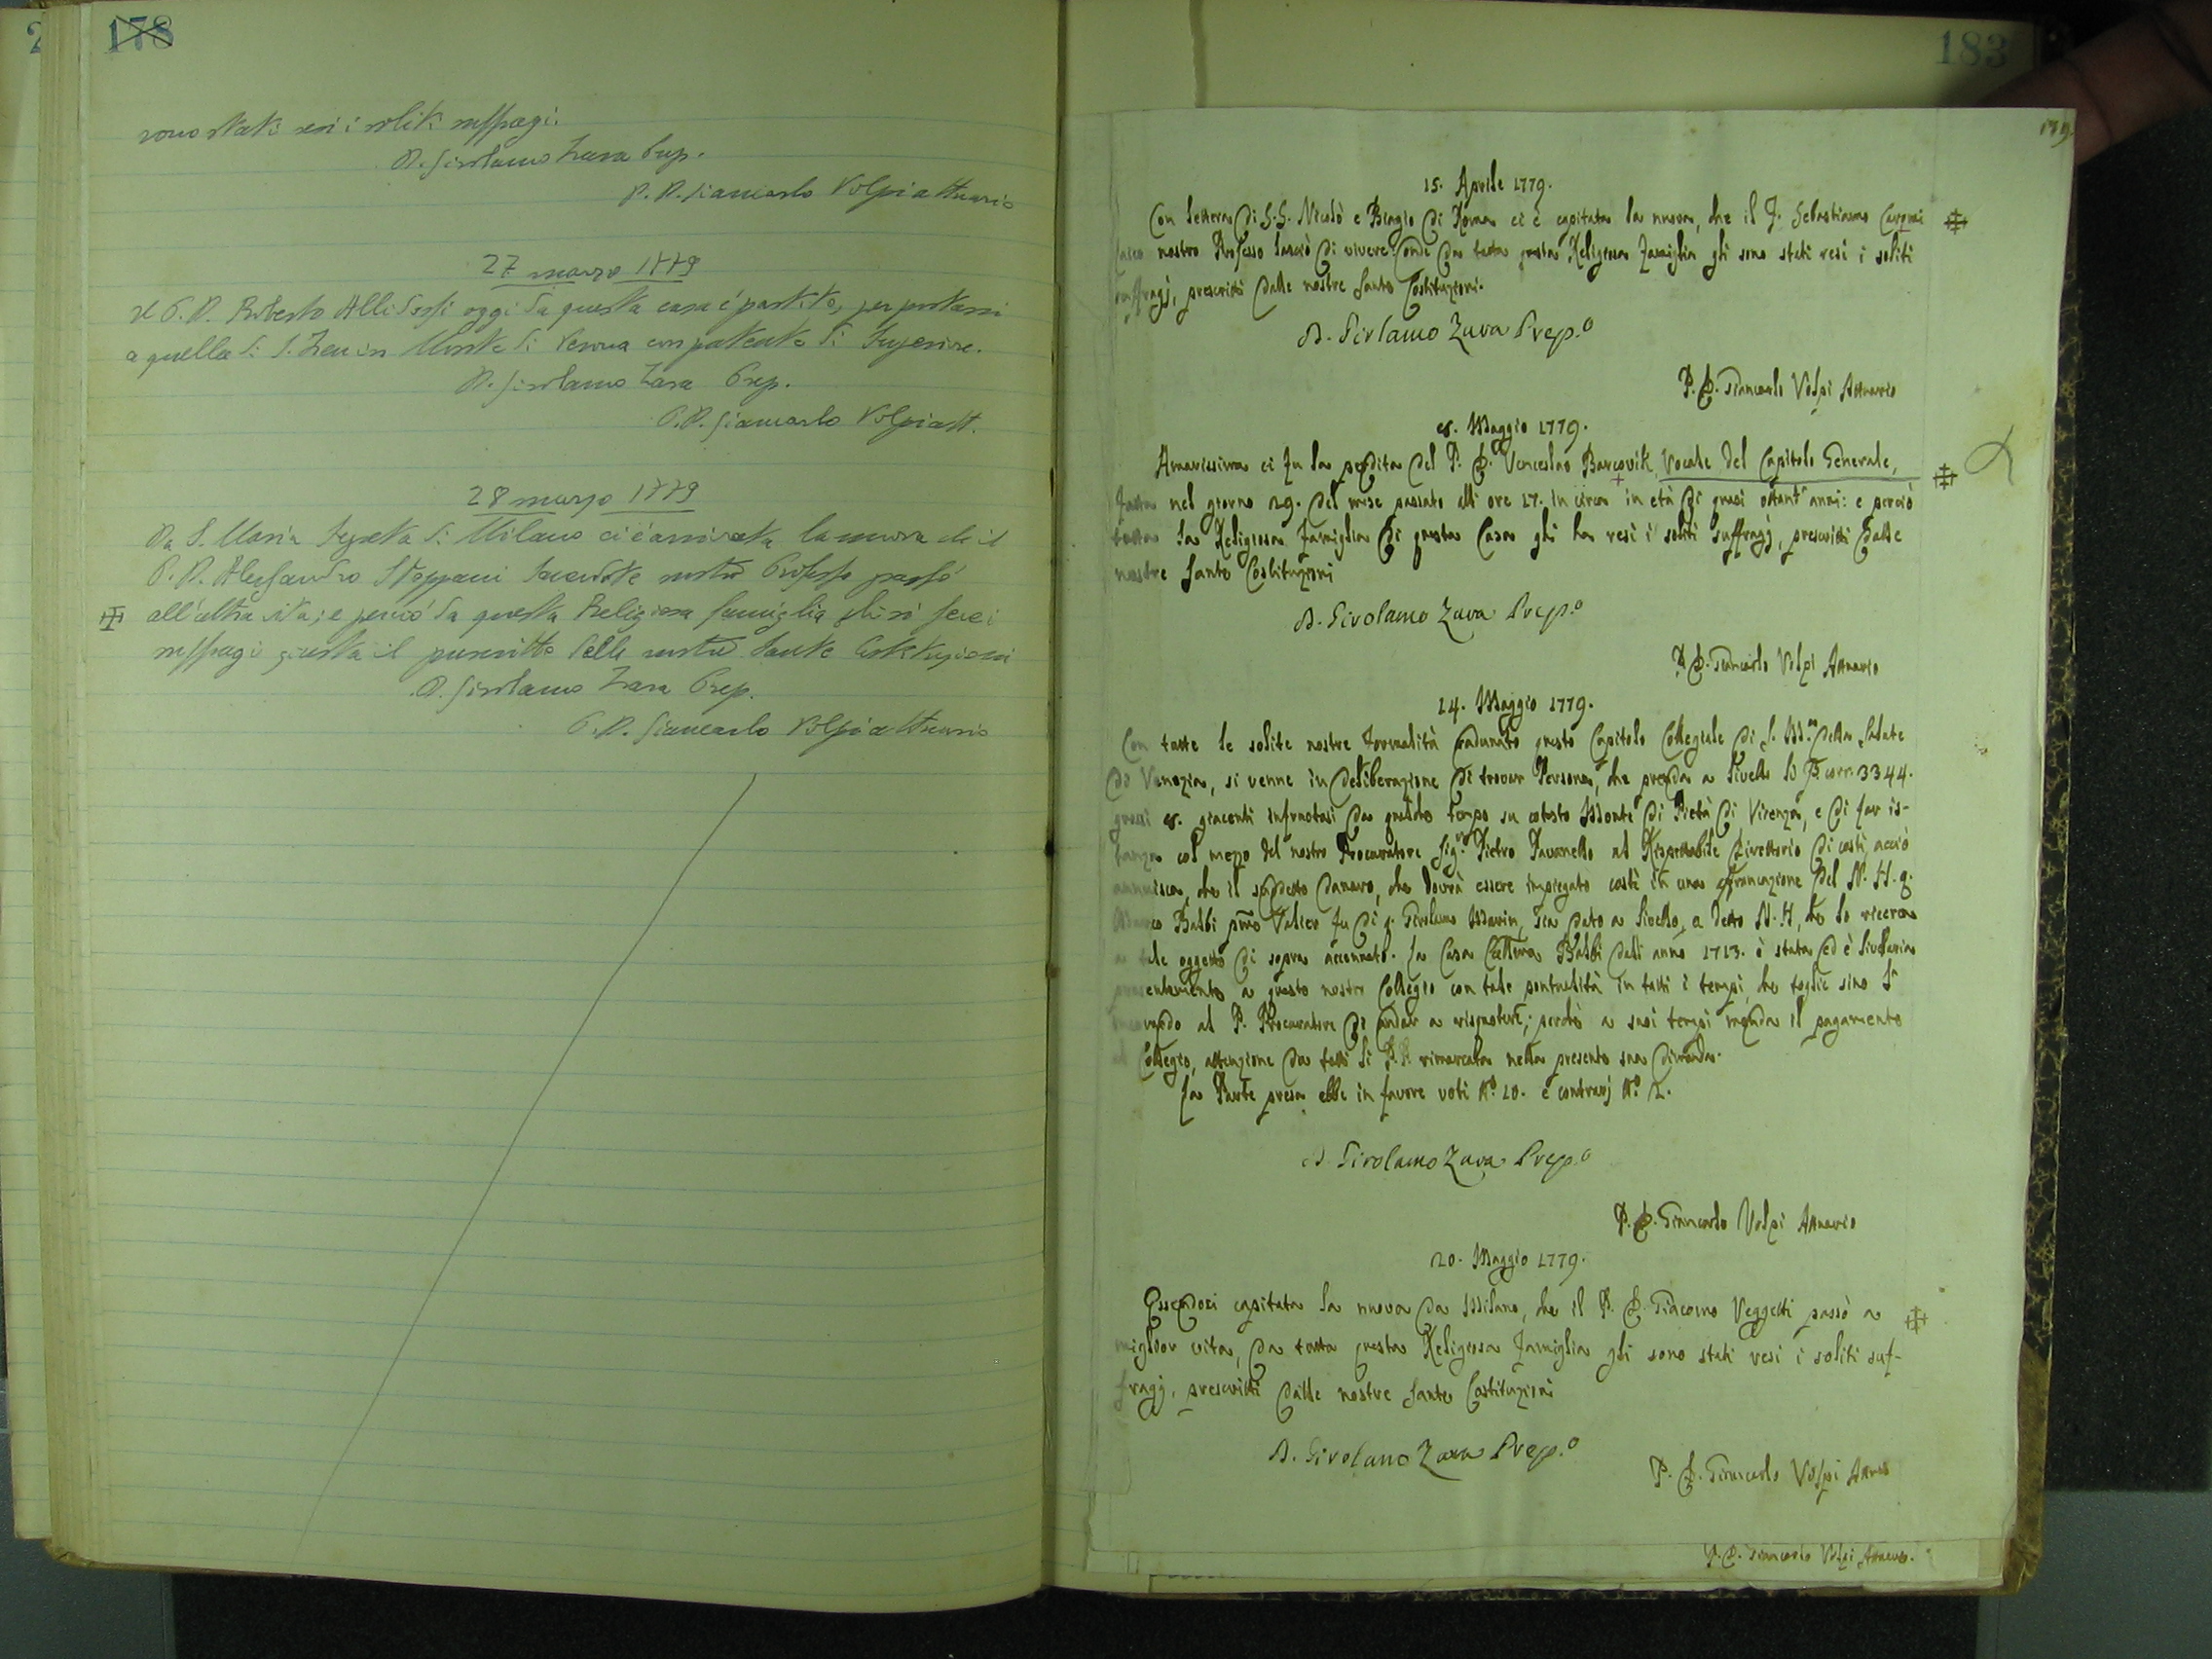 178
sono stati resi i soliti suffragi.
D. Girolamo Zava Prep.
P. D. Giancarlo Volpi attuario
27 marzo 1779
Il P. D. Roberto Allidossi oggi da questa casa è partito, per portarsi
a quella di S. Zen in Monte di Verona con patente di Superiore.
D. Girolamo Zava Prep.
P. D. Giancarlo Volpi att.
28 marzo 1779
Da S. Maria Segreta di Milano ci è arrivata la nuova che il
P. D. Alessandro Stoppani Sacerdote nostro Professo passò
all'altra vita; e perciò da questa Religiosa famiglia gli si fece i
suffragi giusta il prescritto delle nostre Sante Costituzioni
D. Girolamo Zava Prep.
P. D. Giancarlo Volpi attuario
183
179.
15. Aprile 1779.
Con lettera di S.S. Nicolò e Biagio di Roma ci è capitata la nuova, che il F. Sebastiano
laico nostro Professo lasciò di vivere onde da tutta questa Religiosa Famiglia gli sono stati resi i soliti
suffragj, prescritti dalle nostre sante Costituzioni.
D. Girolamo Zava Prep.o
P. D. Giancarlo Volpi Attuario
8. Maggio 1779.
Amarissima ci fu la perdita del P. D. Venceslao Barcovik Vocale del Capitolo Generale,
fatta nel giorno 29. del mese passato alli ore 17. in circa in età di quasi ottant' anni: e perciò
tutta la Religiosa Famiglia di questa Casa gli ha resi i soliti suffragj, prescritti dalle
nostre sante Costituzioni
D. Girolamo Zava Prep.o
P. D. Giancarlo Volpi Attuario
14. Maggio 1779.
Con tutte le solite nostre formalità radunato questo Capitolo Collegiale di S. M.a della Salute
di Venezia, si venne in deliberazione di trovar Persona, che prenda a livello li corr. 3344.
grossi 8. giacenti infruttosi da qualche tempo su cotesto Monte di Pietà di Vicenza, e di far is-
tanza col mezzo del nostro Procuratore Sig.r Pietro Pavanello al Rispettabile Direttorio di costì, acciò
annuisca, che il suddetto danaro, che dovrà essere impiegato costì in una affrancazione del N. H. q.
Marco Balbi Valier fu di q. Girolamo Marin, sia dato a livello, a detto N. H., che lo ricerca
a tale oggetto di sopra accennato. La Casa Balbi dall' anno 1713. è stata ed è livellaria
presentemente a questo nostro Collegio con tale pontualità in tutti i tempi, che toglie sino l'
incomodo al P. Procuratore di andar a riscuotere; perchè a suoi tempi manda il pagamento
al Collegio, attenzione da tutti li P.P. rimarcata nella presente sua dimanda.
La Parte presa ebbe in favore voti N.o 10. e contrarj N.o 2.
D. Girolamo Zava Prep.o
P. D. Giancarlo Volpi Attuario
20. Maggio 1779.
Essendoci capitata la nuova da Milano, che il P. D. Giacomo Veggetti passò a
miglior vita, da tutta questa Religiosa Famiglia gli sono stati resi i soliti suf-
fragj, prescritti dalle nostre sante Costituzioni
D. Girolamo Zava Prep.o
P. D. Giancarlo Volpi
P. D. Giancarlo Volpi Attuario.